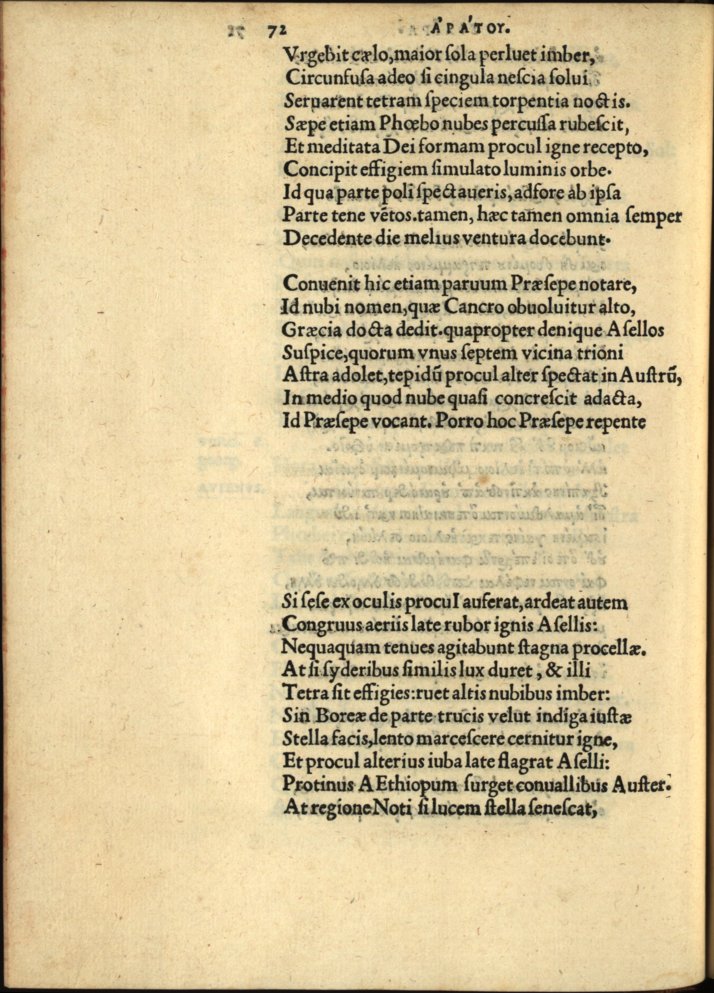 72 ἈΡΆΤΟΥ.
Vrgebit cælo,maior ſola perluet imber,
Circunfuſa adeo ſi cingula neſcia ſolui
Seruarent tetram ſpeciem torpentia noctis.
Sæpe etiam Phœbo nubes percuſſa rubeſcit,
Et meditata Dei formam procul igne recepto,
Concipit effigiem ſimulato luminis orbe.
Id qua parte poli ſpectaueris, adfore ab ipſa
Parte tene vẽtos.tamen, hæc tamen omnia ſemper
Decedente die melius ventura docebunt.
Conuenit hic etiam paruum Præſepe notare,
Id nubi nomen,quæ Cancro obuoluitur alto,
Græcia docta dedit.quapropter denique Aſellos
Suſpice,quorum vnus ſeptem vicina trioni
Aſtra adolet,tepidũ procul alter ſpectat in Auſtrũ,
In medio quod nube quaſi concreſcit adacta,
Id Præſepe vocant. Porro hoc Præſepe repente
Si ſeſe ex oculis procul auferat,ardeat autem
Congruus aeriis late rubor ignis Aſellis:
Nequaquam tenues agitabunt ſtagna procellæ.
At ſi ſyderibus ſimilis lux duret, & illi
Tetra ſit effigies:ruet altis nubibus imber:
Sin Boreæ de parte trucis velut indiga iuſtæ
Stella facis,lento marceſcere cernitur igne,
Et procul alterius iuba late flagrat Aſelli:
Protinus AEthiopum ſurget conuallibus Auſter.
At regione Noti ſi lucem ſtella ſeneſcat,